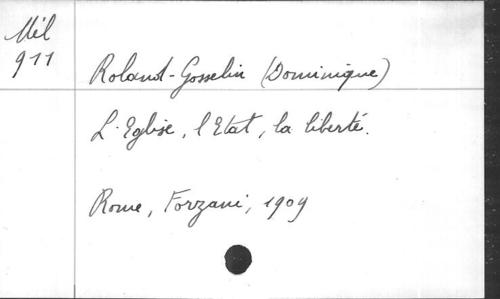 Mél
911
Roland-Gosselin (Dominique)
L'Eglise, l'Etat, la liberté.
Rome, Forzani, 1909